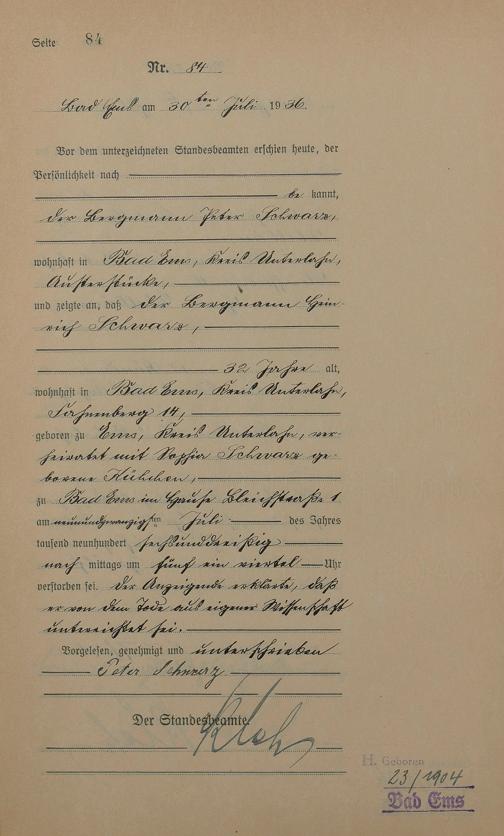 Seite 84
Nr. 84
Bad Ems am 30ten Juli 1936.
Vor dem unterzeichneten Standesbeamten erschien heute, der
Persönlichkeit nach
be kannt,
der Bergmann Peter Schwarz,
wohnhaft in Bad Ems, Kreis Unterlahn,
und zeigte an, daß der Bergmann Hein-
rich Schwarz,
32 Jahre alt,
wohnhaft in Bad Ems, Kreis Unterlahn,
14,
geboren zu Ems, Kreis Unterlahn, ver-
heiratet mit Sophia Schwarz ge-
borene
zu Bad Ems im Hause Bleichstraße 1
am neunundzwanzigsten Juli des Jahres
tausend neunhundert sechsunddreißig
nach mittags um fünf ein viertel Uhr
verstorben sei. Der Anzeigende erklärte, daß
er von dem Tode aus eigener Wissenschaft
unterrichtet sei.
Vorgelesen, genehmigt und unterschrieben
Peter Schwarz
Der Standesbeamte.
H. Geboren
23/1904
Bad Ems